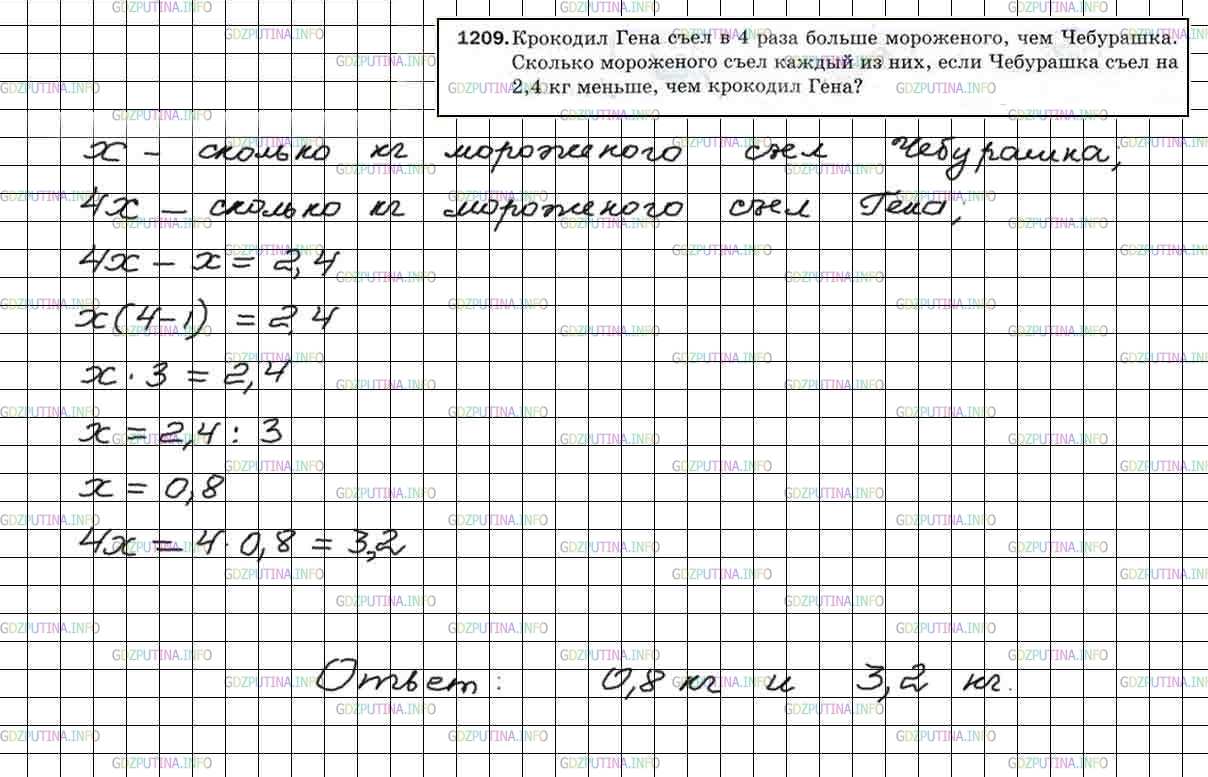 1209. Крокодил Гена съел в 4 раза больше мороженого, чем Чебурашка.
Сколько мороженого съел каждый из них, если Чебурашка съел на
2,4 кг меньше, чем крокодил Гена?
x – сколько кг мороженого съел Чебурашка,
4x – сколько кг мороженого съел Гена,
4x – x = 2,4
x(4–1) = 2,4
x · 3 = 2,4
x = 2,4 : 3
x = 0,8
4x = 4 · 0,8 = 3,2
Ответ: 0,8 кг и 3,2 кг.
GDZPUTINA.INFO